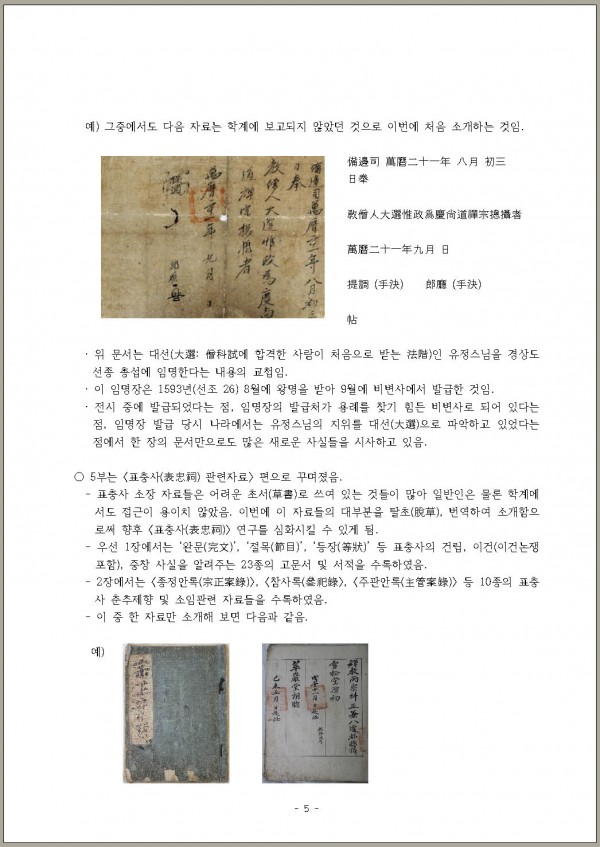 예) 그중에서도 다음 자료는 학계에 보고되지 않았던 것으로 이번에 처음 소개하는 것임.
備邊司 萬曆二十一年 八月 初三
日奉
敎僧人大選惟政爲慶尙道禪宗摠攝者
萬曆二十一年九月 日
提調 (手決) 郎廳 (手決)
帖
· 위 문서는 대선(大選: 僧科試에 합격한 사람이 처음으로 받는 法階)인 유정스님을 경상도
선종 총섭에 임명한다는 내용의 교첩임.
· 이 임명장은 1593년(선조 26) 8월에 왕명을 받아 9월에 비변사에서 발급한 것임.
· 전시 중에 발급되었다는 점, 임명장의 발급처가 용례를 찾기 힘든 비변사로 되어 있다는
점, 임명장 발급 당시 나라에서는 유정스님의 지위를 대선(大選)으로 파악하고 있었다는
점에서 한 장의 문서만으로도 많은 새로운 사실들을 시사하고 있음.
○ 5부는 〈표충사(表忠祠) 관련자료〉 편으로 꾸며졌음.
- 표충사 소장 자료들은 어려운 초서(草書)로 쓰여 있는 것들이 많아 일반인은 물론 학계에
서도 접근이 용이치 않았음. 이번에 이 자료들의 대부분을 탈초(脫草), 번역하여 소개함으
로써 향후 〈표충사(表忠祠)〉 연구를 심화시킬 수 있게 됨.
- 우선 1장에서는 '완문(完文)', '절목(節目)', '등장(等狀)' 등 표충사의 건립, 이건(이건논쟁
포함), 중창 사실을 알려주는 23종의 고문서 및 서적을 수록하였음.
- 2장에서는 〈종정안록(宗正案錄)〉, 〈참사록(叅祀錄)〉, 〈주관안록(主管案錄)〉 등 10종의 표충
사 춘추제향 및 소임관련 자료들을 수록하였음.
- 이 중 한 자료만 소개해 보면 다음과 같음.
예)
- 5 -